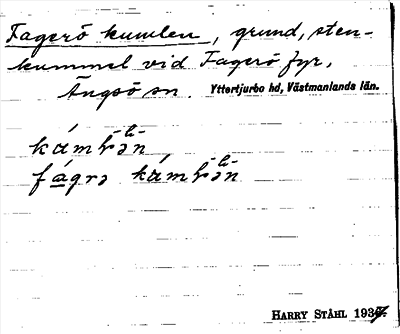 Fagerö kumlen, grund, sten-
kummel vid Fagerö fyr,
Ängsö sn. Yttertjurbo hd, Västmanlands län.
HARRY STÅHL 1937.